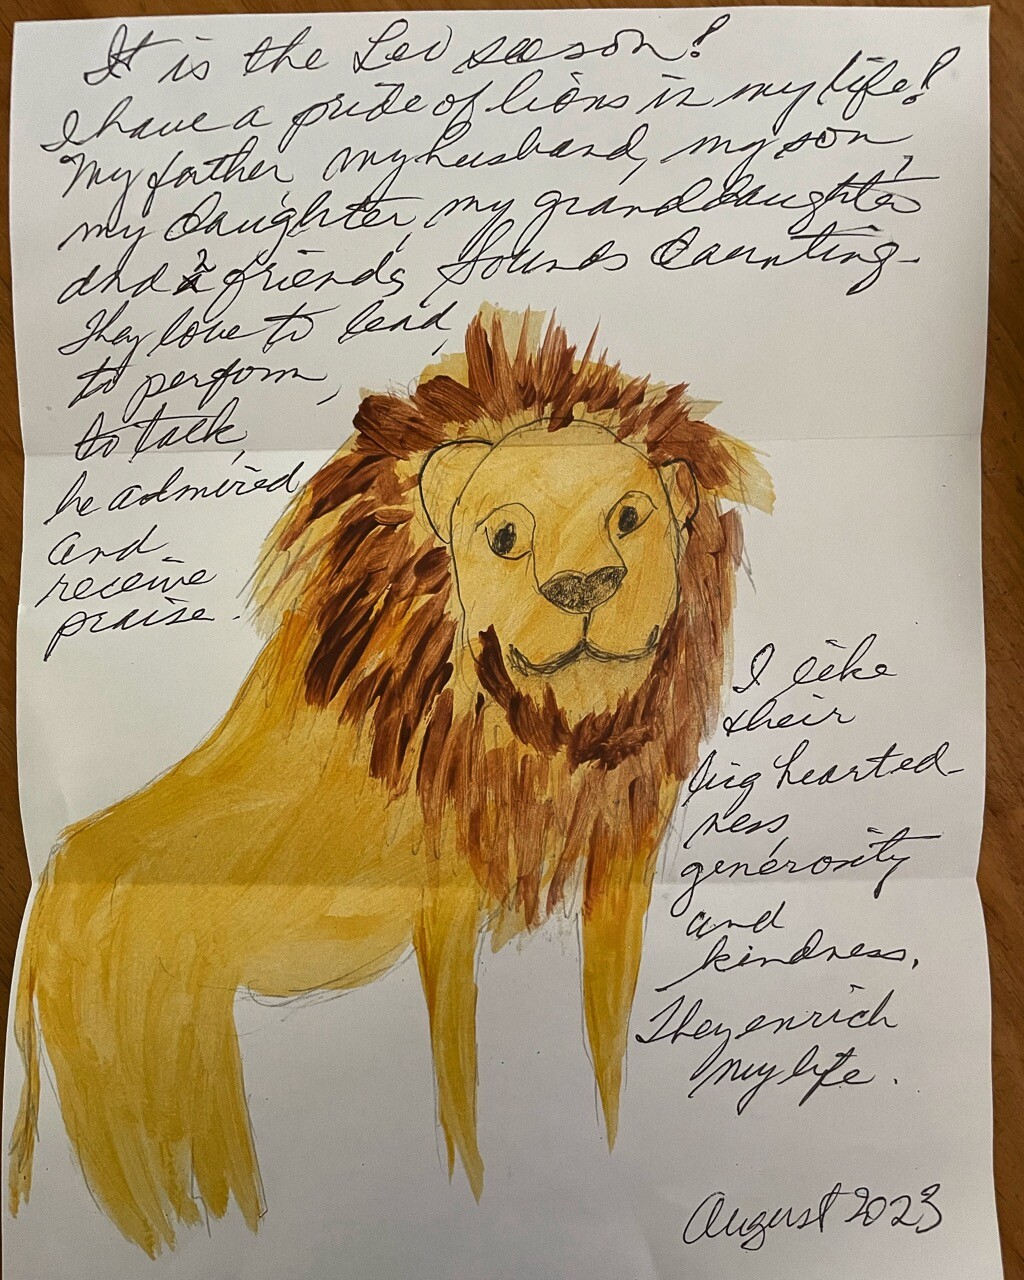 It is the Leo season!
I have a pride of lions in my life!
My father, my husband, my son,
my daughter, my granddaughter,
and 2 friends. Sounds daunting.
They love to lead,
to perform,
to talk,
be admired
and
receive
praise.
I like
their
big hearted-
ness,
generosity
and
kindness.
They enrich
my life.
August 2023